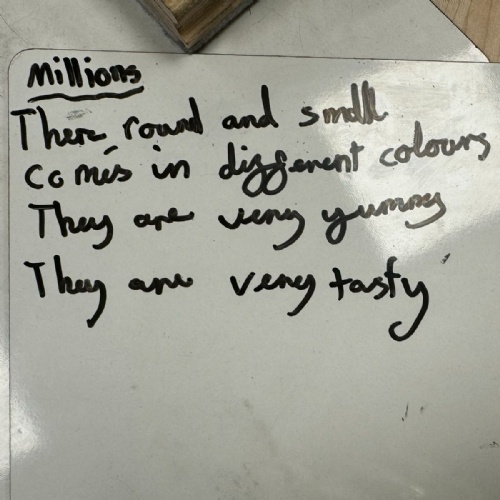 Millions
There round and small
comes in different colours
They are very yummy
They are very tasty